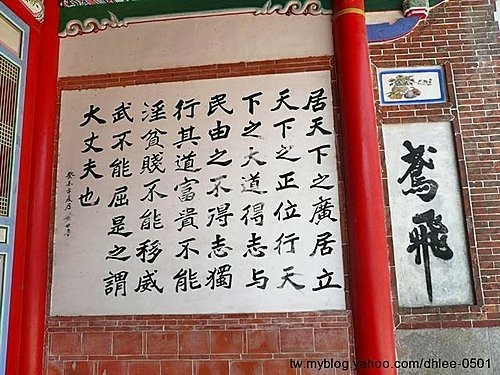 鳶飛
居天下之廣居立
天下之正位行天
下之大道得志与
民由之不得志獨
行其道富貴不能
淫貧賤不能移威
武不能屈是之謂
大丈夫也
tw.myblog.yahoo.com/dhlee-0501